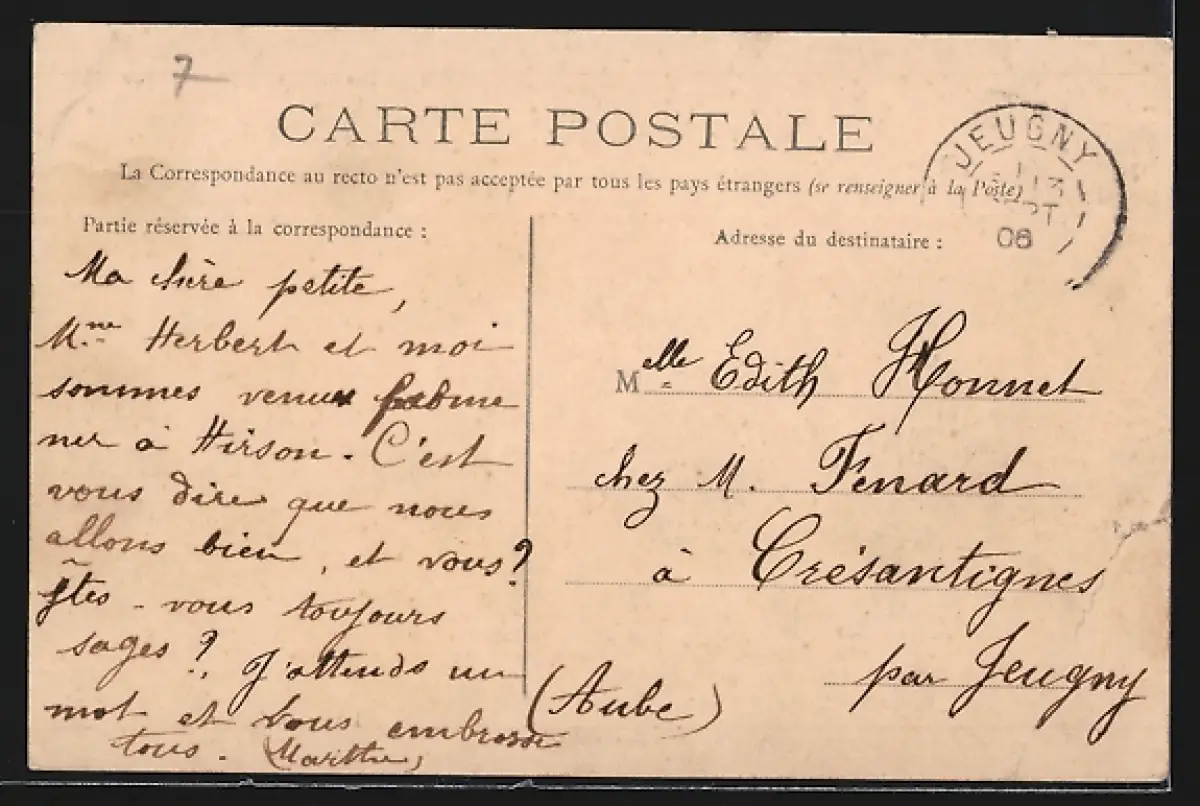 7
CARTE POSTALE
La Correspondance au recto n'est pas acceptée par tous les pays étrangers (se renseigner à la Poste)
JEUGNY
13
06
Partie réservée à la correspondance :
Ma chère petite,
Mme Herbert et moi
sommes venues prome
ner à Hirson. C'est
vous dire que nous
allons bien, et vous?
Êtes-vous toujours
sages? J'attends un
mot et vous embrasse
tous. Marthe
Adresse du destinataire :
Melle Edith Honnet
chez M. Fénard
à Crésantignes
par Jeugny
(Aube)